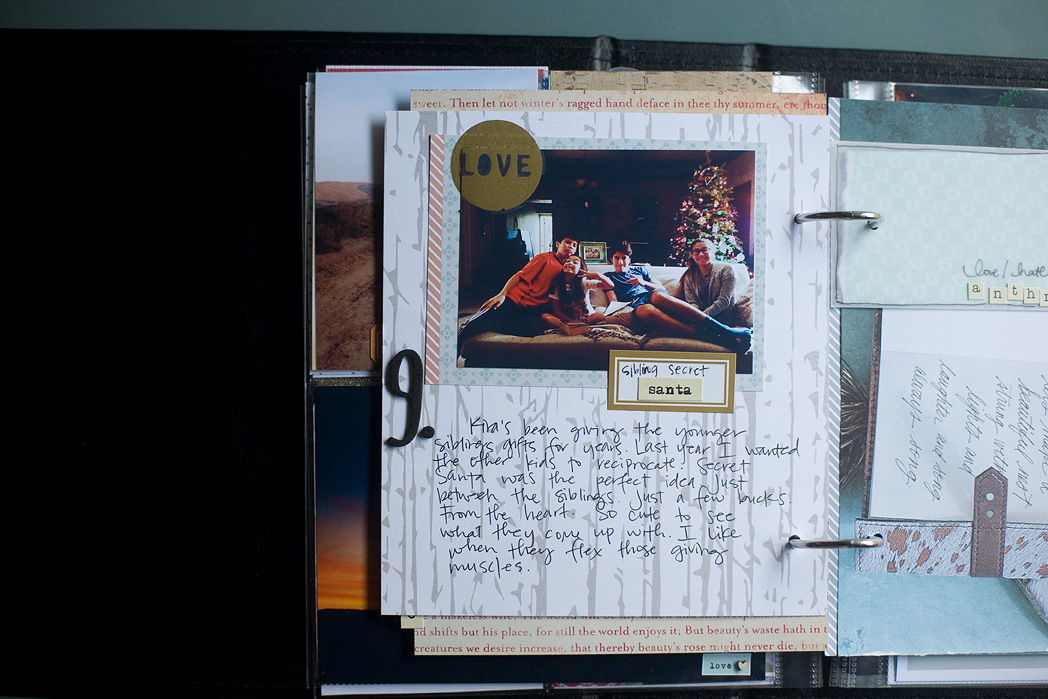 sweet. Then let not winter's ragged hand deface in thee thy summer, ere thou
LOVE
sibling secret
santa
9.
Kira's been giving the younger
siblings gifts for years. Last year I wanted
the other kids to reciprocate. Secret
Santa was the perfect idea just
between the siblings. Just a few bucks
from the heart. So cute to see
what they come up with. I like
when they flex those giving
muscles.
nd shifts but his place, for still the world enjoys it; But beauty's waste hath in t
creatures we desire increase, that thereby beauty's rose might never die, but
love
love/hate
anthr
beautiful must
strong with
light and
laughter and strong
always strong.